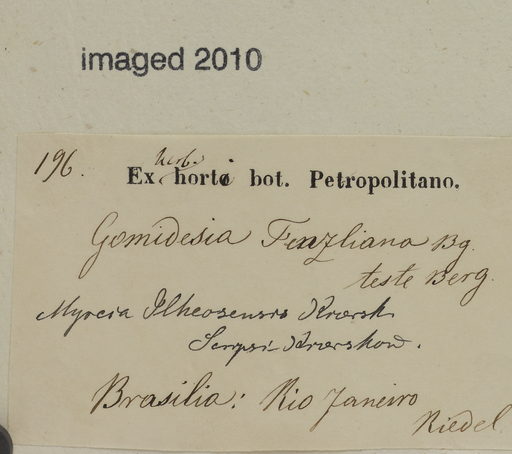 imaged 2010
196.
herb.
Ex horti bot. Petropolitano.
Gomidesia Fenzliana Bg.
teste Berg.
Myrcia Ilheosensis Kiærsk
Scripsi Kiærskou.
Brasilia: Rio Janeiro
Riedel.